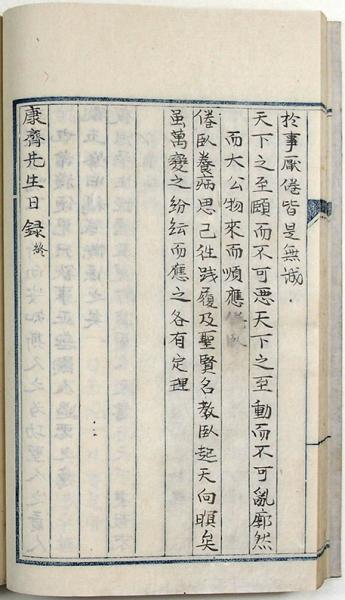 於事厭倦皆是無誠.
天下之至賾而不可惡天下之至動而不可亂廓然
而大公物來而順應倦臥
倦臥養病思已徃踐履及聖賢名教臥起天向暝矣
虽萬變之紛紜而應之各有定理
康齋先生日録終